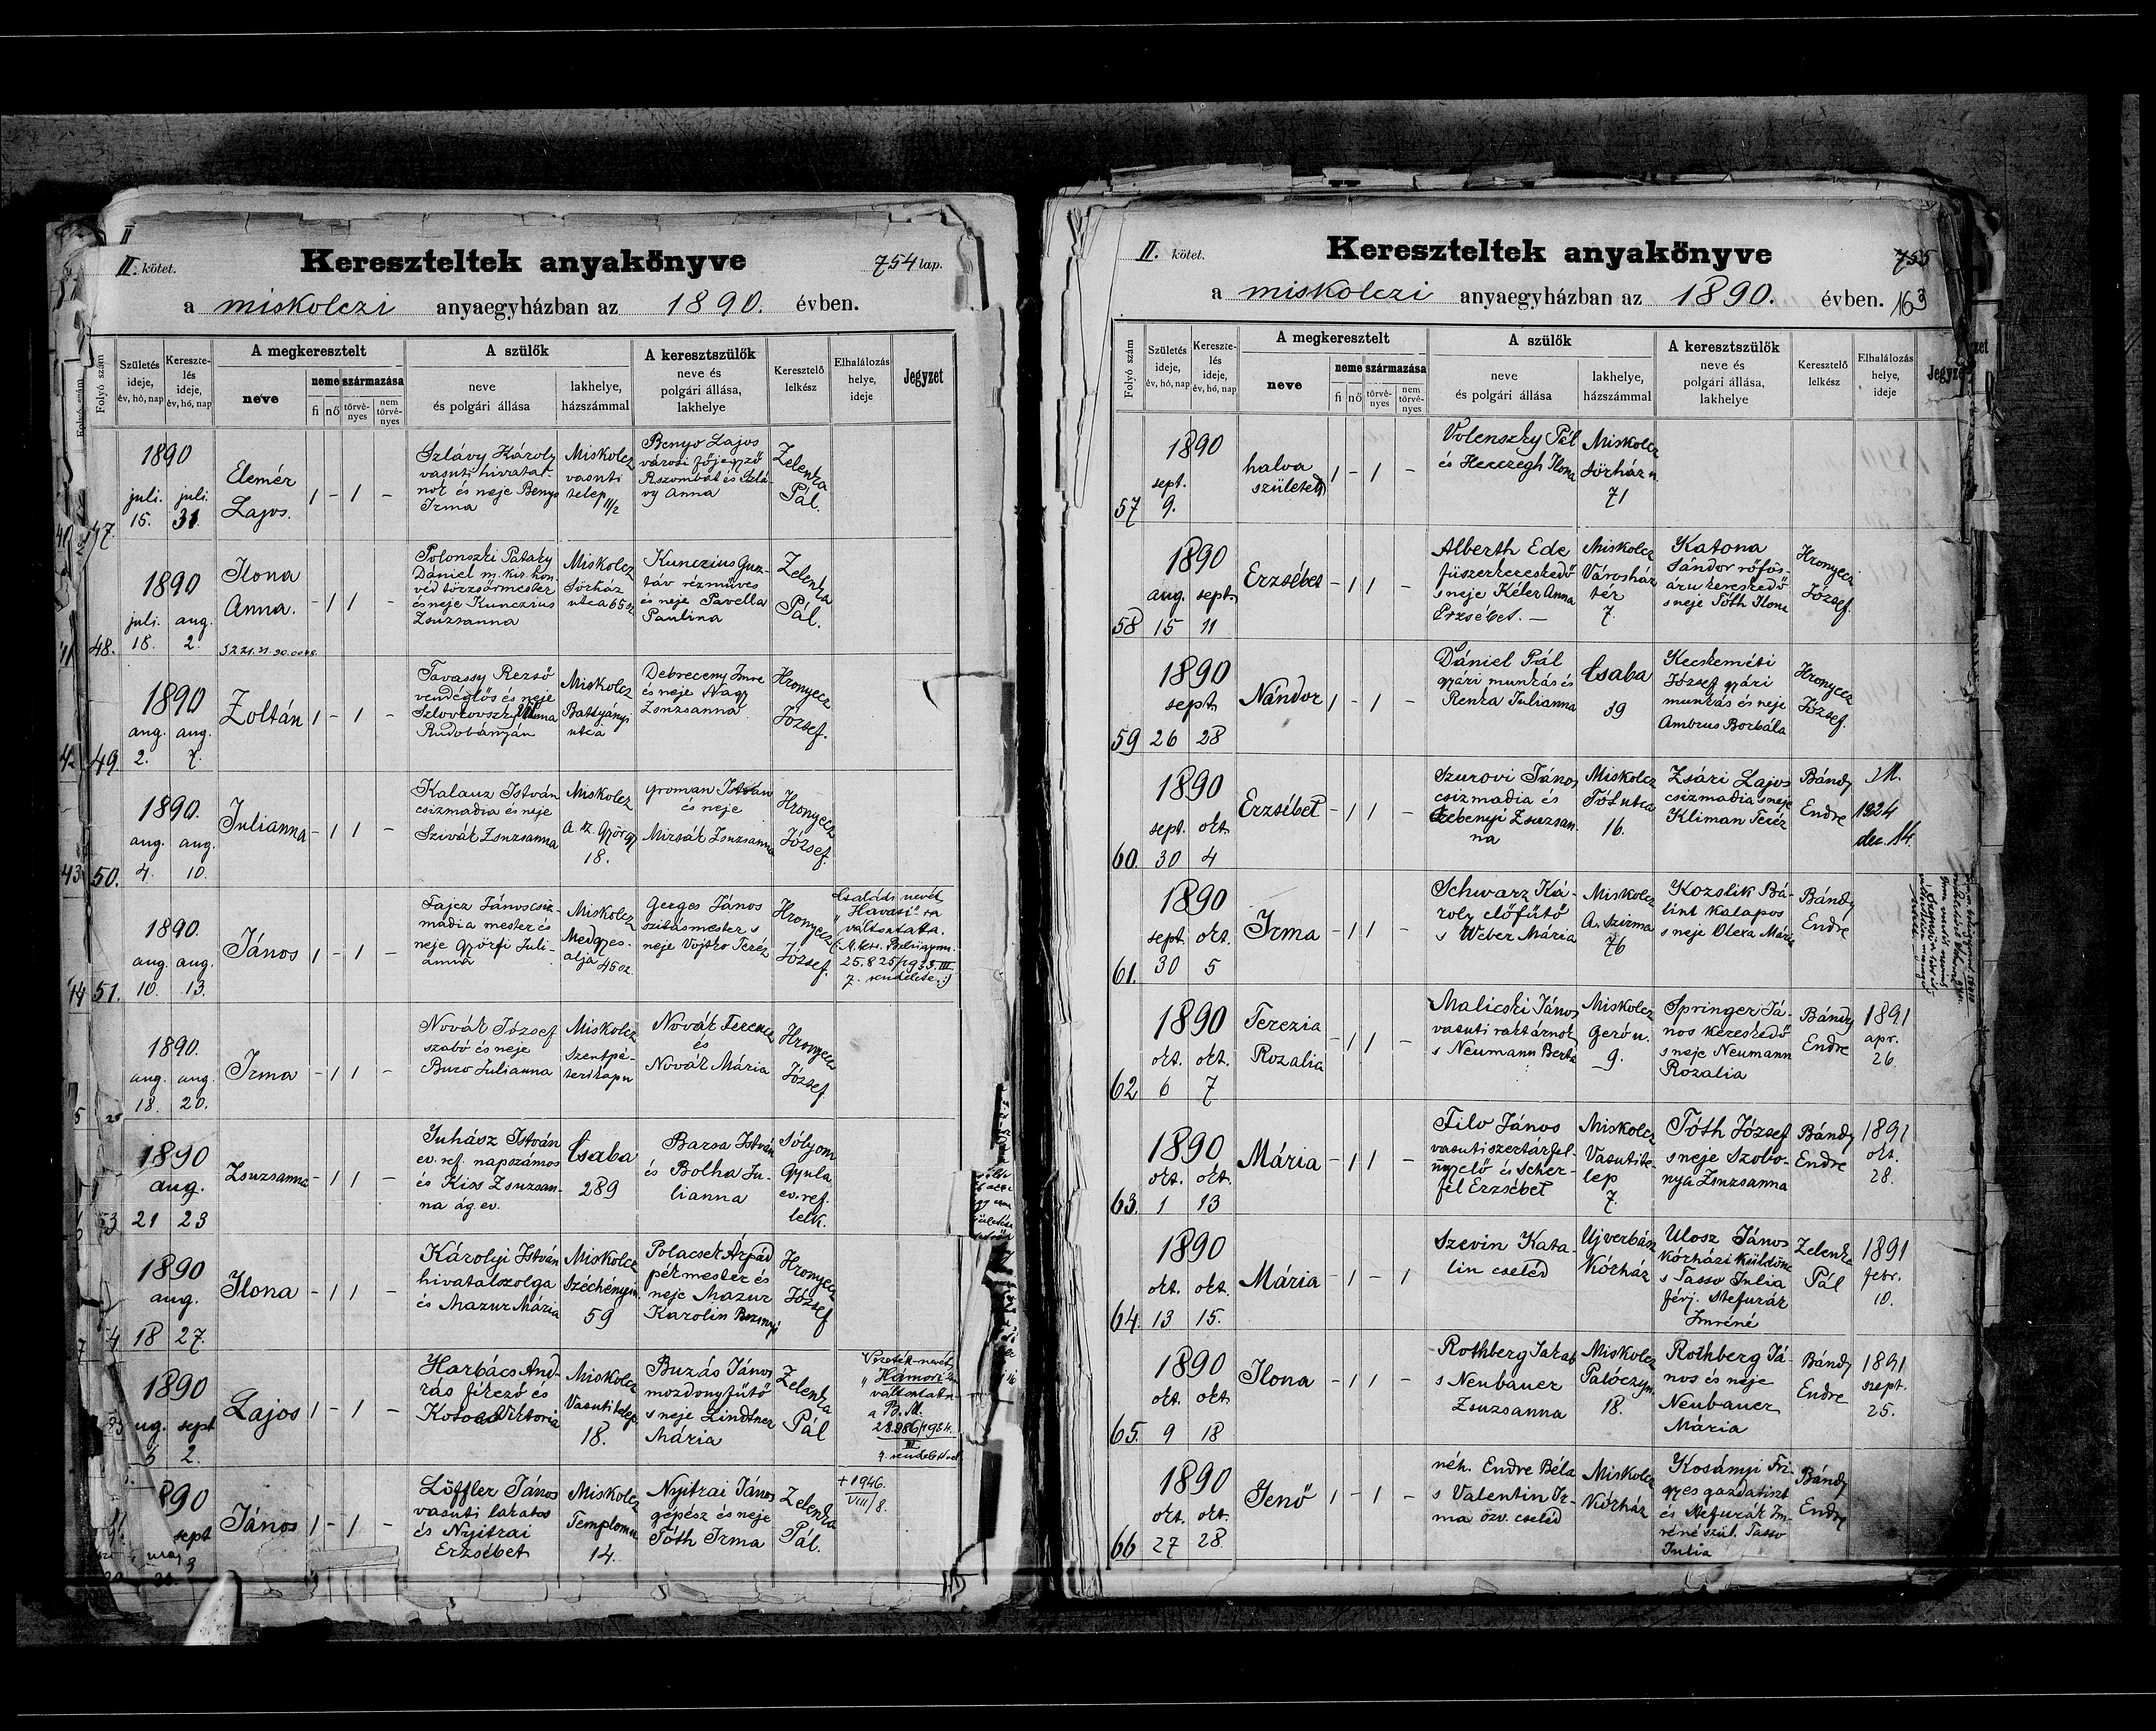 II
II. kötet.
Kereszteltek anyakönyve
754 lap.
a miskolczi anyaegyházban az 1890. évben.
Folyó szám
Születés ideje, év, hó, nap
Keresztelés ideje, év, hó, nap
A megkeresztelt
neve
neme
fi
nő
származása
törvényes
nem törvényes
A szülők
neve és polgári állása
lakhelye, házszámmal
A keresztszülők neve és polgári állása, lakhelye
Keresztelő lelkész
Elhalálozás helye, ideje
Jegyzet
47.
1890
juli. 15.
juli. 31.
Elemér
Lajos.
1 - 1 -
Szlávy Károly
vasuti hivatal-
nok és neje Benyo
Irma
Miskolcz
vasuti
telep 11/2
Benyo Lajos
városi főjegyző
Rszombat és Szlá-
vy Anna
Zelenka
Pál.
48.
1890
juli. 18.
aug. 2.
Ilona
Anna.
- 1 1 -
Polonszki Pataky
Dániel m. kir. hon-
véd törzsőrmester
és neje Kunczius
Zsuzsanna
Miskolcz
Sörház
utca 65 sz
Kunczius Gusz-
táv rézműves
és neje Pavella
Paulina
Zelenka
Pál.
49.
1890
aug. 2.
aug. 7.
Zoltán
1 - 1 -
Tavassy Rezső
vendéglős és neje
Rudobányán
Miskolcz
Batthyányi
utca
Debreceny Imre
és neje Nagy
Zsuzsanna
Hronyecz
József.
50.
1890.
aug. 4.
aug. 10.
Julianna
- 1 1 -
Kalauz István
csizmadia és neje
Szivák Zsuzsanna
Miskolcz
A. sz. György
18.
Groman István
és neje
Mirsák Zsuzsanna
Hronyecz
József.
51.
1890.
aug. 10.
aug. 13.
János
1 - 1 -
Fajcz János csiz-
madia mester és
neje Györfi Juli-
anna
Miskolcz
Medgyes-
alja 45 sz.
Gerges János
szitásmester s
neje Vojtko Teréz
Hronyecz
József.
Családi nevét
"Havasi"-ra
változtatta.
25.825/1933. III
7. rendelete.
1890.
aug. 18.
aug. 20.
Irma
- 1 1 -
Novák József
szabó és neje
Buzo Julianna
Miskolcz
Szentpé-
terikapu
Novák Ferencz
és
Novák Mária
Hronyecz
József.
53
1890
aug.
21 23
Zsuzsanna
- 1 1 -
Juhász István
ev. ref. napszámos
és Kiss Zsuzsan-
na ág. ev.
Csaba
289
Barsa István
és Bolha Ju-
lianna
Sólyom
Gyula
ev. ref.
lelk.
4
1890
aug.
18 27.
Ilona
- 1 1 -
Károlyi István
hivatalszolga
és Mazur Mária
Miskolcz
Széchényi u.
59
Polacsek Árpád
pékmester és
neje Mazur
Karolin
Hronyecz
József
1890
ug. sept
6 2.
Lajos
1 - 1 -
Harbács And-
rás fékező és
Viktoria
Miskolcz
Vasuti telep
18.
Buzás János
mozdonyfűtő
s neje Lindtner
Mária
Zelenka
Pál
Vezeték-nevét
"Hámori"-ra
változtatta
a B. M.
28.886/1934.
III
rendelettel
890
sept
János
1 - 1 -
Löffler János
vasuti lakatos
és Nyitrai
Erzsébet
Miskolcz
Templom u.
14.
Nyitrai János
gépész és neje
Tóth Irma
Zelenka
Pál.
+ 1946.
VIII/8.
II. kötet.
Kereszteltek anyakönyve
755
a miskolczi anyaegyházban az 1890. évben.
163
Folyó szám
Születés ideje, év, hó, nap
Keresztelés ideje, év, hó, nap
A megkeresztelt
neve
neme
fi
nő
származása
törvényes
nem törvényes
A szülők
neve és polgári állása
lakhelye, házszámmal
A keresztszülők neve és polgári állása, lakhelye
Keresztelő lelkész
Elhalálozás helye, ideje
Jegyzet
57
1890
sept.
9.
halva
született
1 - 1 -
Volenszky Pál
és Herczegh Ilona
Miskolcz
Sörház u.
71
58
1890
aug. sept.
15 11
Erzsébet
- 1 1 -
Alberth Ede
füszerkereskedő
s neje Kéler Anna
Erzsébet. -
Miskolcz
Városház
tér
7.
Katona
Sándor rőfös-
árukereskedő
s neje Tóth Ilona
Hronyecz
József.
59
1890
sept
26 28
Nándor
1 - 1 -
Dániel Pál
gyári munkás és
Renka Julianna
Csaba
39
Kecskeméti
József gyári
munkás és neje
Ambrus Borbála
Hronyecz
József.
60.
1890
sept. okt.
30 4
Erzsébet
- 1 1 -
Szurovi János
csizmadia és
Szebenyi Zsuzsan-
na
Miskolcz
Tót utca
16.
Zsári Lajos
csizmadia s neje
Kliman Teréz
Bándy
Endre
M.
1924
dec. 14.
61.
1890
sept. okt.
30 5
Irma
- 1 1 -
Schwarz Ká-
roly előfűtő
s Weber Mária
Miskolcz
A. Szirma
76
Kozslik Bá-
lint kalapos
s neje Olexa Mária
Bándy
Endre
62
1890
okt. okt.
6 7
Terezia
Rozalia
- 1 1 -
Malicski János
vasuti raktárnok
s Neumann Berta
Miskolcz
Gerő u.
9.
Springer Já-
nos kereskedő
s neje Neumann
Rozalia
Bándy
Endre
1891
apr.
26.
63.
1890
okt. okt.
1 13
Mária
- 1 1 -
Filo János
vasuti szertárfel-
ügyelő és Scher-
fel Erzsébet
Miskolcz
Vasutite-
lep
7.
Tóth József
s neje Szobo-
nya Zsuzsanna
Bándy
Endre
1891
okt.
28.
64.
1890
okt. okt.
13 15.
Mária
- 1 - 1
Szevin Kata-
lin cseléd
Ujverbász
Kórház
Ulosz János
kórházi küldönc
s Tasso Julia
férj. Stefurák
Imréné
Zelenka
Pál
1891
febr.
10.
65.
1890
okt. okt
9 18
Ilona
- 1 1 -
Rothberg Jakab
s Neubauer
Zsuzsanna
Miskolcz
Palóczy u.
18.
Rothberg Já-
nos és neje
Neubauer
Mária
Bándy
Endre
1891
szept.
25.
66
1890
okt. okt.
27 28
Jenő
1 - 1 -
néh. Endre Béla
s Valentin Ir-
ma özv. cseléd
Miskolcz
Kórház
Kosányi Fri-
gyes gazdatiszt
és Stefurák Im-
réné szül. Tasso
Julia
Bándy
Endre